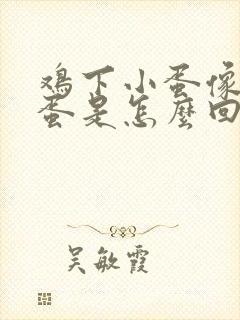 鸡下小蛋像
蛋是怎麼回
吴敏霞